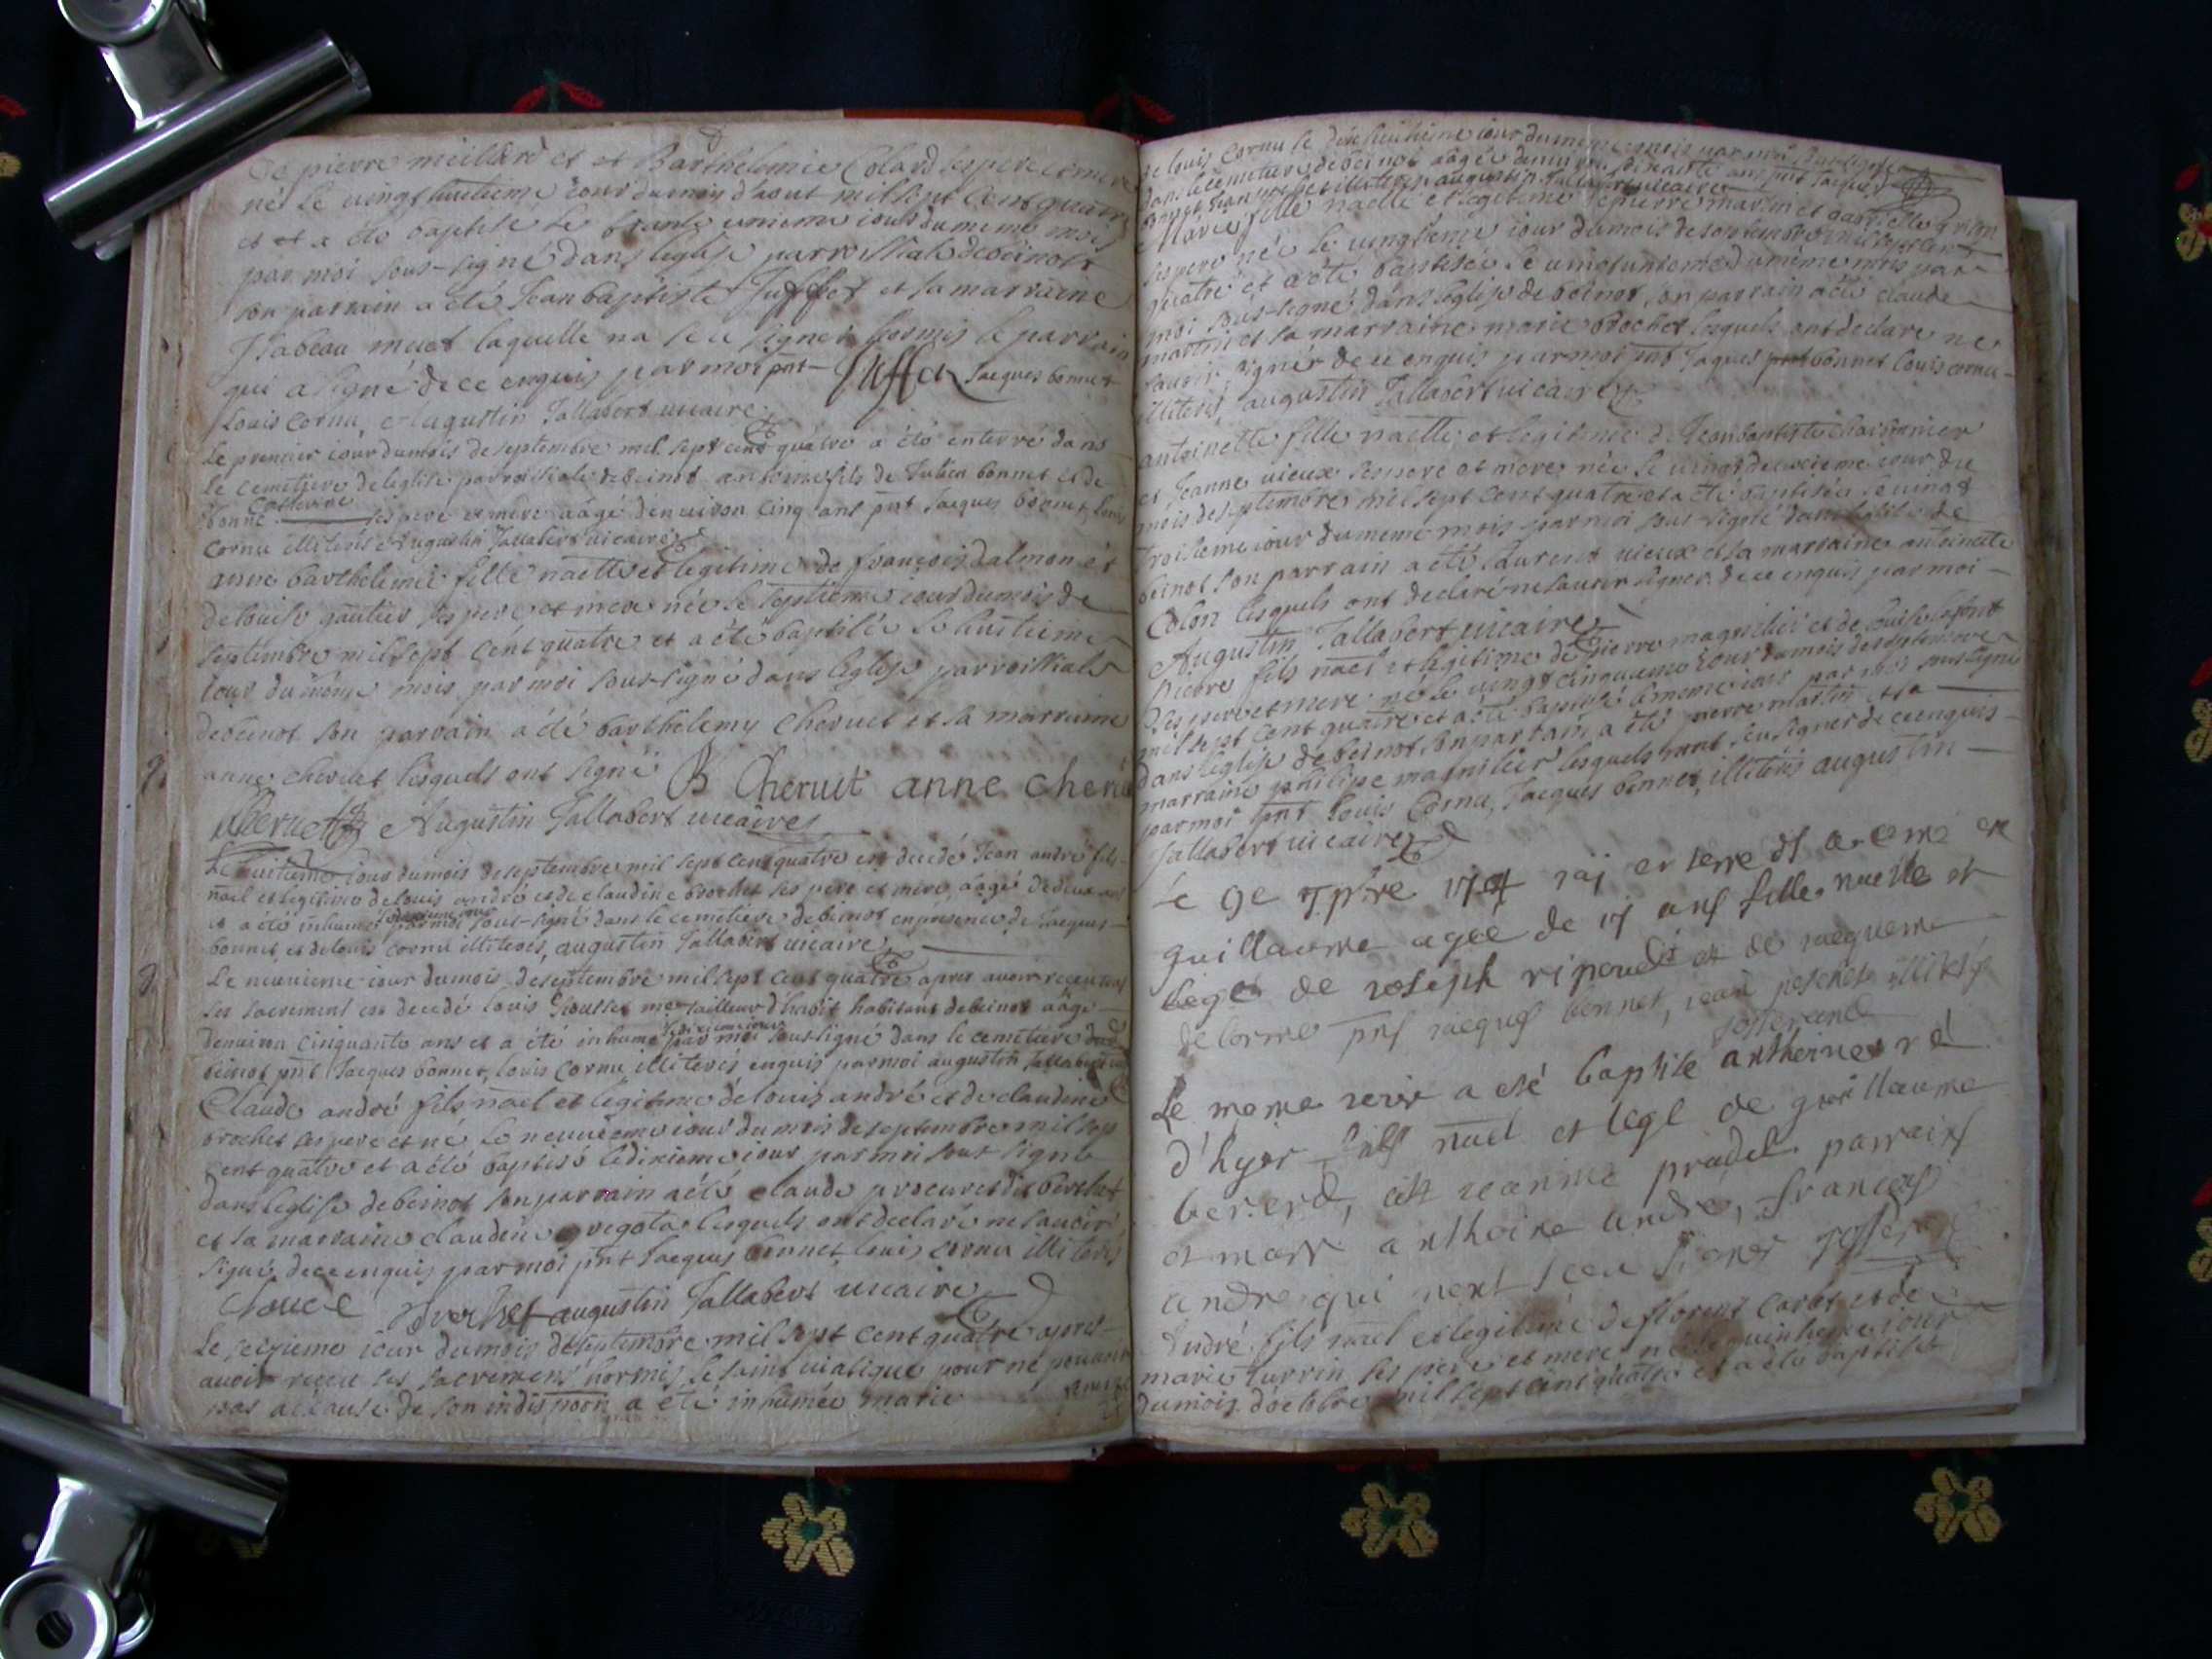 De pierre meillard et et Barthelemie Colard ses pere et mere
né le vingt huitieme iour du mois d'aout mil sept cent quatre
et et a été baptisé le trante unieme iour du meme mois
par moi sous-signé dans leglise parroissiale de beinost
son parrain a été Jean baptiste Juffet et sa marraine
Isabeau muet laquelle na sceu signer hormis le parrain
qui a signé de ce enquis par moi pnt Juffet Jacques bonnet
Louis Cornu, Augustin Tallabert uicaire
Le premier iour du mois de septembre mil sept cent quatre a été enterré dans
le cemetiere de leglise parroissiale de beinost antoine fils de Julien bonnet et de
bonne Catherine ses pere et mere aâgé denuiron cinq ans pnt Jacques bonnet, Louis
Cornu illiterés Augustin Tallabert uicaire
anne barthelemie fille naelle et legitime de françois dalmon et
de louise gautier ses pere et mere née le septieme iour du mois de
septembre mil sept cent quatre et a été baptisée le huitieme
iour du meme mois par moi sous-signé dans leglise parroissiale
de beinost son parrain a été barthelemy Cheruet et sa marraine
anne cheruet lesquels ont signé B Cheruit anne cheru
Cheruet Augustin Tallabert uicaire
Le huitieme iour du mois de septembre mil sept cent quatre est decedé Jean andré fils
nael et legitime de louis andré et de claudine brochet ses pere et mere aâgé de deux ans
et a été inhumé par moi sous-signé dans le cemetiere de beinost en presence de Jacques
bonnet, et de louis cornu illiterés, augustin Tallabert uicaire
Le neuuieme iour du mois de septembre mil sept cent quatre apres auoir receu tous
ses sacremens est decedé louis Grousset me tailleur d'habit habitant de beinost aâgé
denuiron cinquante ans et a été inhumé le dixieme iour par moi sous-signé dans le cemetiere de
beinost pnt Jacques bonnet, louis Cornu illiterés enquis par moi augustin Tallabert
Claude andré fils nael et legitime de louis andré et de claudine
brochet ses pere et né le neuuieme iour du mois de septembre mil sept
cent quatre et a été baptisé le dixieme iour par moi sous signé
dans leglise de beinost son parrain a été claude procuret dit
et sa marraine claudine lesquels ont declaré ne sauoir
signé de ce enquis par moi pnt Jacques bonnet louis cornu illiterés
Clauce augustin Tallabert uicaire
Le seizieme iour du mois de septembre mil sept cent quatre apres
auoir receu ses sacremens hormis le saint uiatique pour ne pouant
pas a cause de son indispoon a été inhumée marie
de louis Cornu le dixehuitieme iour du meme mois par moi sous-signé
dans le cemetiere de beinost aâgée denuiron soixante ans pnt Jacques
bonnet, illiterés augustin Tallabert uicaire
Marie fille naelle et legitime de pierre martin et
ses pere née le uingtieme iour du mois de septembre mil sept cent
quatre et a été baptisée le uingtunieme du méme mois par
moi sous-signé dans leglise de beinost son parrain a été claude
martin et sa marraine marie brochet lesquels ont declaré ne
sauoir signer de ce enquis par moi pnt Jaques bonnet louis cornu
illiterés augustin Tallabert uicaire
antoinette fille naelle et legitime de Jean baptiste
et Jeanne uieux ses pere et mere née le uingt deuxieme iour du
mois de septembre mil sept cent quatre et a été baptisée le uingt
troisieme iour du meme mois par moi sous-signé dans leglise de
beinost son parrain a été Laurent uieux et sa marraine antoinette
Colon lesquels ont declaré ne sauoir signer de ce enquis par moi
Augustin Tallabert uicaire
Pierre fils nael et legitime de pierre magnillier et de louise
ses pere et mere né le uingt cinquieme iour du mois de septembre
mil sept cent quatre et a été baptisé le meme iour par moi sous signé
dans leglise de beinost son parrain a été pierre martin et sa
marraine philipe magnillier lesquels nont sceu signer de ce enquis
par moi pnt louis Cornu, Jacques bonnet, illiterés augustin
Tallabert uicaire
Le 9e 1704 iaj enterre
guillaume agée de 17 ans fille naelle et
lege de ioseph et de iaqueme
delorme pns iacques bonnet, iean illiteres
Le meme iour a esté baptise
d'hyer fils nael et legl de guillaume
berard, et ieanne pradel. parrain
et marr anthoine andre, francoise
andre qui nont sceu signer
André fils nael et legitime de florent carat et de
marie turrin ses pere et mere né le quinzieme iour
du mois d'octobre mil sept cent quatre et a été baptisé